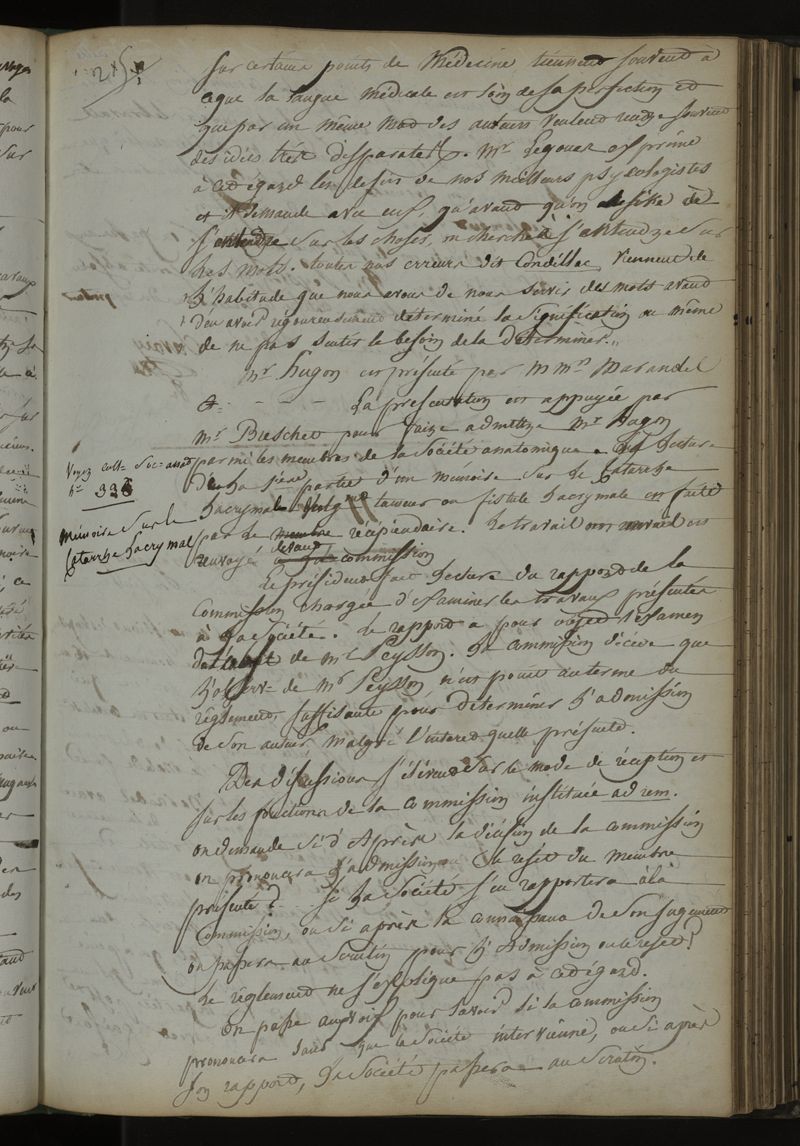 sur certains points de Médecine tiennent souvent à
ce que la langue Médicale est loin de sa perfection et
que par un même Mot des auteurs veulent rendre souvent
des idées très disparates. Mr. Legouas exprime
à cet égard les desirs de nos meilleurs psycologistes
et demande avec eux, qu'avant qu'on desire de
s'entendre sur les choses, on cherche à s'entendre sur
les Mots. toutes nos erreurs dit Condillac, viennent de
l'habitude que nous avons de nous servir des mots avant
d'en avoir rigoureusement determiné la signification ou même
de ne pas sentir le besoin de la determiner.
Mr Hugon est présenté par MM. Marandel
& - - - - La présentation est appuyée par
Mr Breschet pour faire admettre Mr Hugon
parmi les membres de la Société anatomique. lecture
de la 1ère partie d'un mémoire sur le Catarrhe
Lacrymal tumeur ou fistule Lacrymale est faite
par le membre récipiendaire. Le travail est
renvoyé devant commission
Voyez coll. Soc. anat
n° 338
Mémoire sur le
Catarrhe Lacrymal
Le président fait lecture du rapport de la
Commission chargée d'examiner les travaux présentés
à la Société. Le rapport a pour objet l'examen
de de Mr Peysson. La commission décide que
l'observ. de Mr Peysson, n'est point au terme du
réglement, suffisante pour determiner l'admission
de son auteur, malgré l'interet quelle présente.
Des discussions s'élèvent sur le mode de réception et
sur les fonctions de la commission instituée ad rem.
on demande si d'Après la décision de la commission
on prononcera l'admission ou le rejet du membre
présenté? Si la Société s'en rapportera à la
Commission, ou si après la connaissance de son jugement
on passera au Scrutin pour l'Admission ou le rejet?
Le réglement ne s'explique pas à cet égard.
On passe aux voix pour savoir si la commission
prononcera sans que la Société intervienne, ou si après
son rapport, la Société passera au Scrutin.